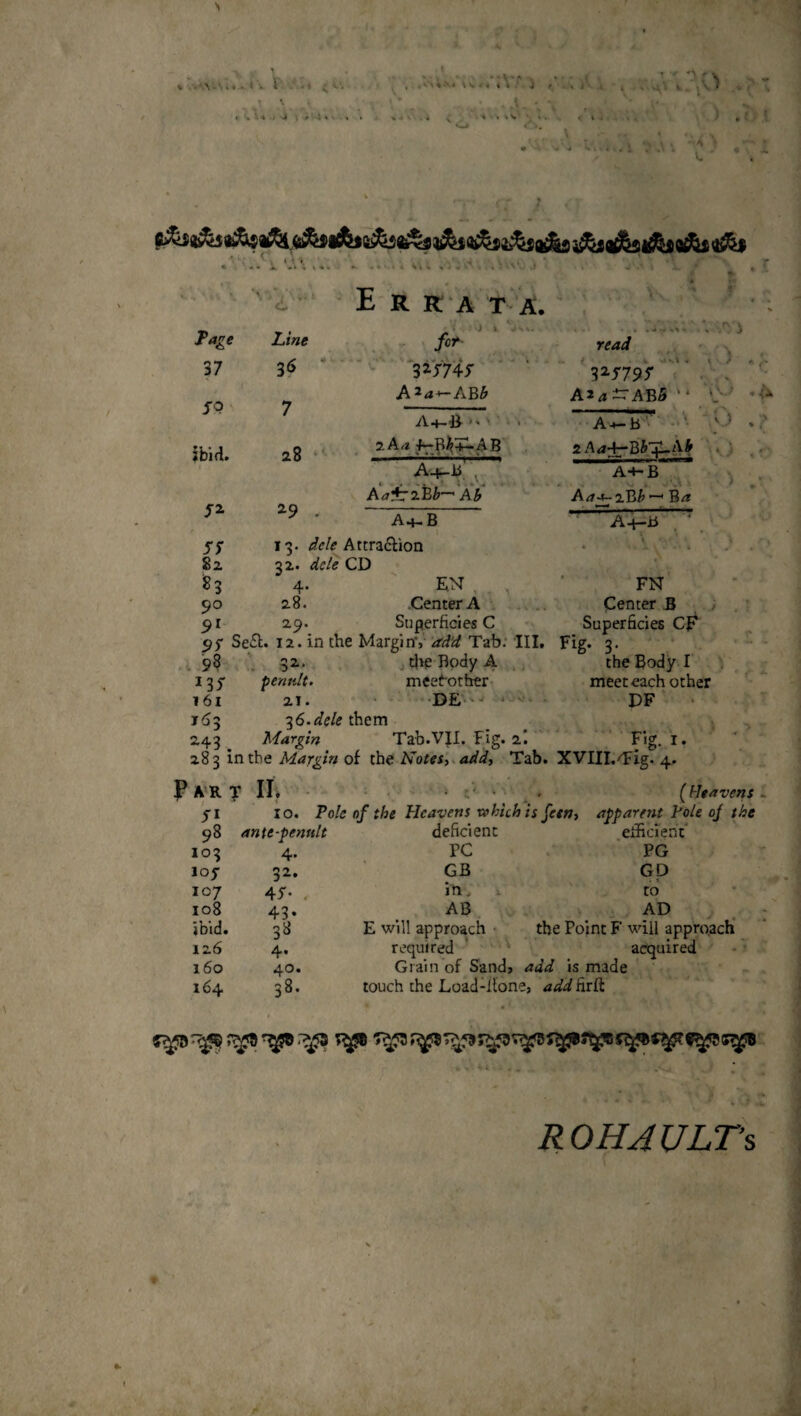 ERRATA.
Page Line for read
37 36 325745 325795
50 7 A2a—ABb / A+B A2a—ABb / A—B
ibid. 28 2Aa+Bb—AB / A+B 2Aa+Bb—Ab / A+B
52 29 Aa+2Bb—Ab / A+B Aa+2Bb—Ba / A+B
55 13. dele Attraction
82 32. dele CD
83 4. EN FN
90 28. Center A Center B
91 29. Superficies C Superficies CF
95 Sect. 12. in the Margin, add Tab. III. Fig. 3.
98 32. the Body A the Body I
135 penult. meet other meet each other
161 21. DE DF
163 36. dele them
243 Margin Tab.VII. Fig. 2. Fig. 1.
283 in the Margin of the Notes, add, Tab. XVIII. Fig. 4.
PART II. (Heavens
51 10. Pole of the Heavens which is seen, apparent Pole of the
98 ante-penult deficient efficient
103 4. PC PG
105 32. GB GD
107 45. in to
108 43. AB AD
ibid. 38 E will approach the Point F will approach
126 4. required acquired
160 40. Grain of Sand, add is made
164 38. touch the Load-stone, add first
ROHAULT's